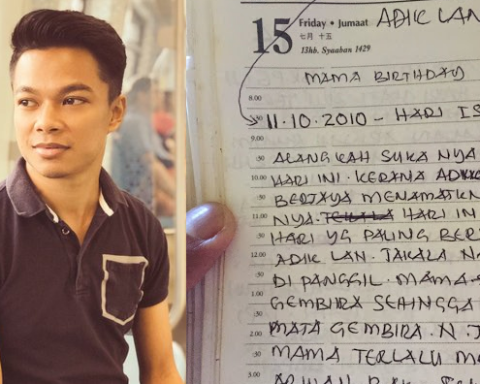 15 Friday • Jumaat ADIK LAN
七月 十五
13hb. Syaaban 1429
MAMA BIRTHDAY
8.00
11.10.2010 - HARI IS
9.00
:30 ALANGKAH SUKA NYA
10.00 HARI INI. KERANA
:30 BERJAYA MENAMATKN
11.00 NYA. HARI IN
:30 HARI YG PALING BER
12.00 ADIK LAN. TAKALA N
:30 DI PANGGIL. MAMA
1.00 GEMBIRA SEHINGGA
:30 MATA GEMBIRA. N. T
2.00
:30 MAMA TERLALU M
3.00